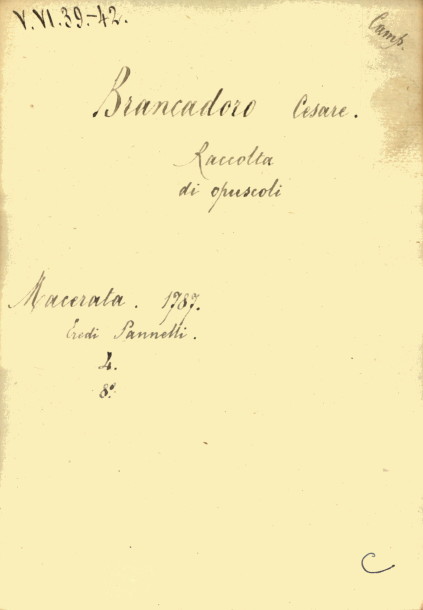 V.VI.39-42.
Camp.
Brancadoro Cesare.
Raccolta
di opuscoli
Macerata. 1787.
Eredi Pannelli.
4.
8º
C